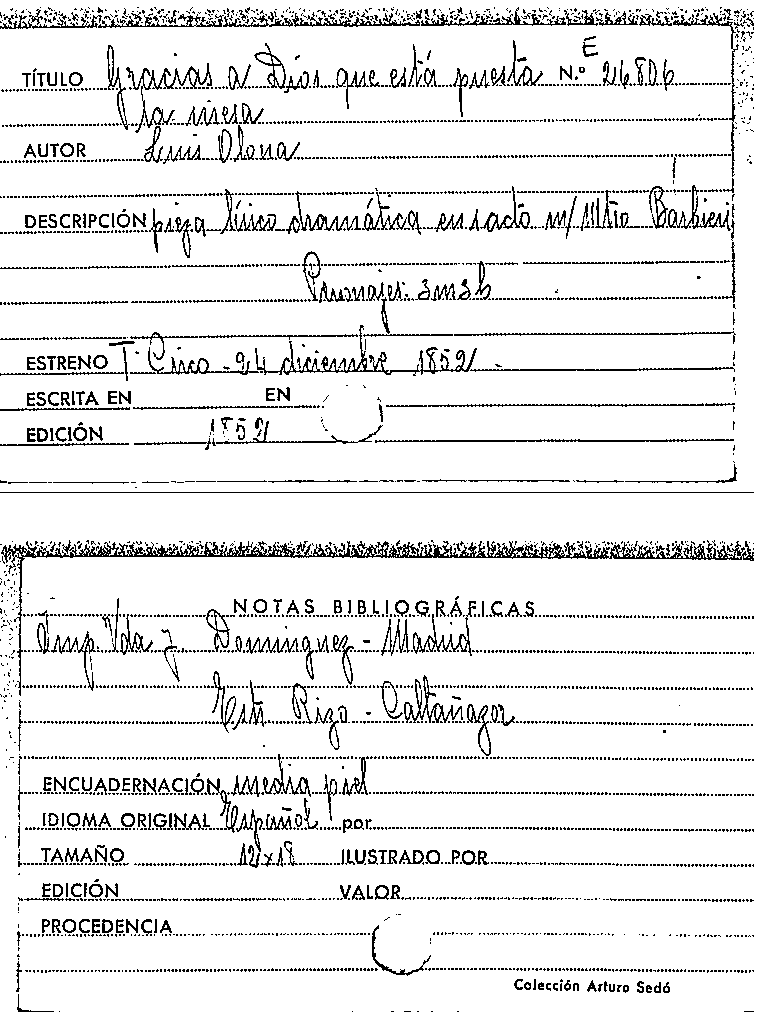 E
TÍTULO Gracias a Dios que está puesta N.º 24806
la mesa
AUTOR Luis Olona
DESCRIPCIÓN pieza lírico dramática en 1 acto m/ Mtro Barbieri
Personajes: 3m3h
ESTRENO T. Circo - 24 diciembre 1852 -
ESCRITA EN EN
EDICIÓN 1852
NOTAS BIBLIOGRÁFICAS
Imp. Vda J. Dominguez - Madrid
Estr Rizo - Caltañazor
ENCUADERNACIÓN media piel
IDIOMA ORIGINAL Español por
TAMAÑO 12x18 ILUSTRADO POR
EDICIÓN VALOR
PROCEDENCIA
Colección Arturo Sedó